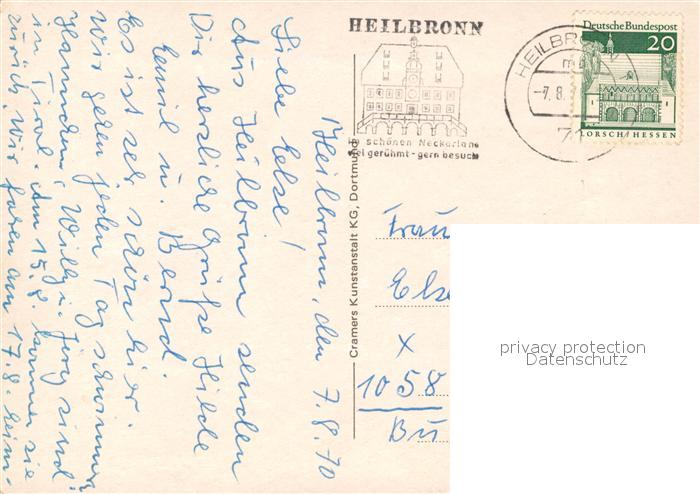 Heilbronn, den 7.8.70
Liebe Else!
Aus Heilbronn senden
Dir herzliche Grüße Hilde
Emil u. Bernd.
Es ist ser schön hier.
Wir gehen jeden Tag schwimmen
Hannchen, Willy u. Jörg sind
in Tirol. Am 15.8. kommen sie
zurück. Wir faren am 17.8. heim
HEILBRONN
schönen Neckarland
viel gerühmt - gern besucht
HEILBRONN
-7.8.
7
Deutsche Bundespost
20
LORSCH/HESSEN
Cramers Kunstanstalt KG, Dortmund
Frau
Else
x
1058
Bu
privacy protection
Datenschutz